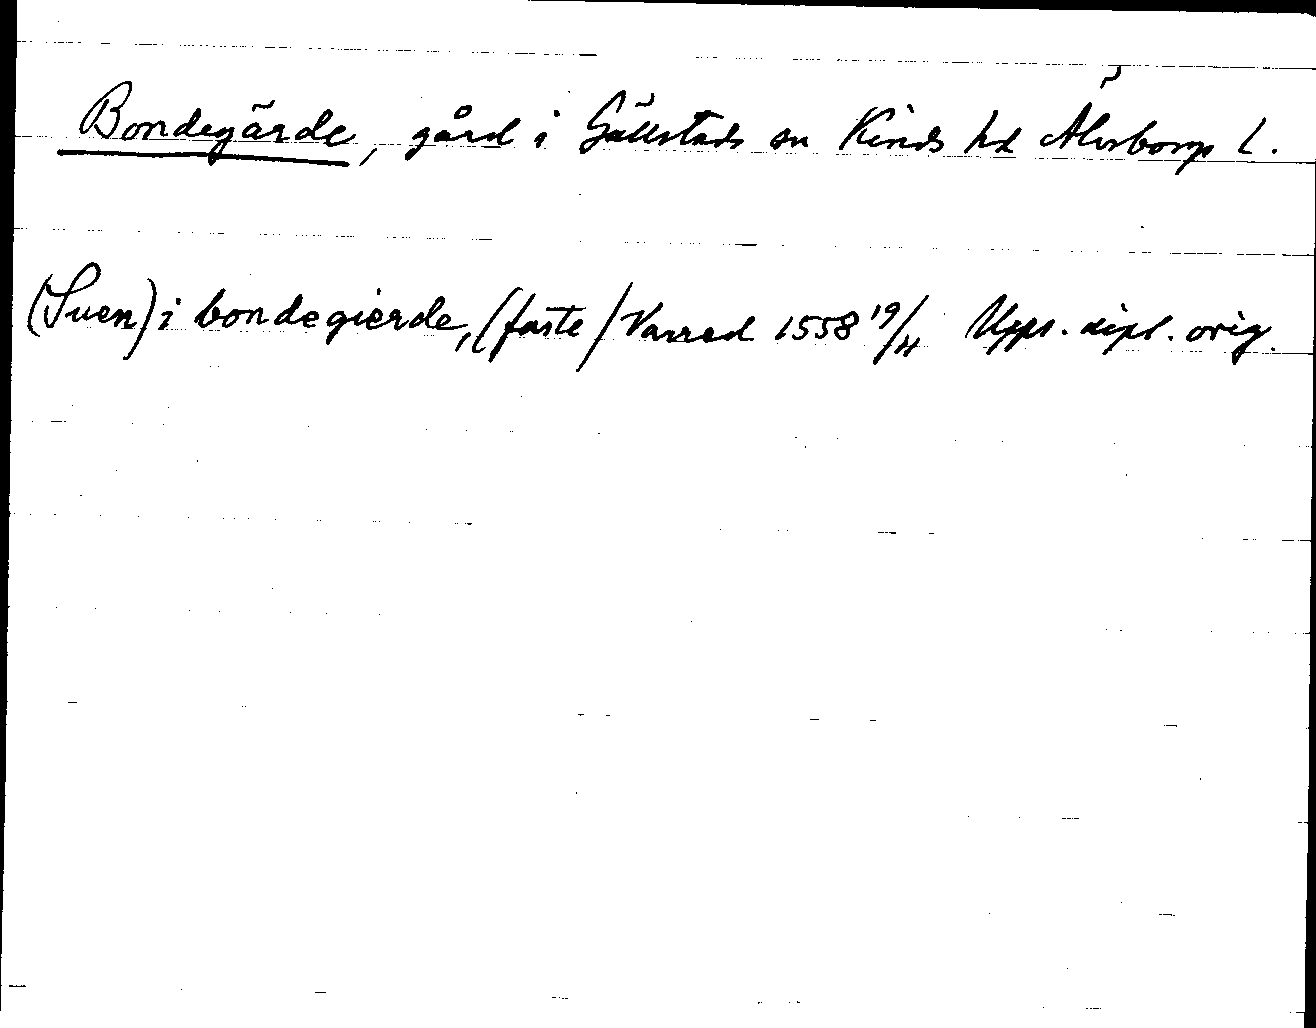 Bondegärde, gård i Gällstads sn Kinds hd Älvsborgs l.
(Suen) i bondegierde, (faste / Varned 1558 19/4 Upps. dipl. orig.